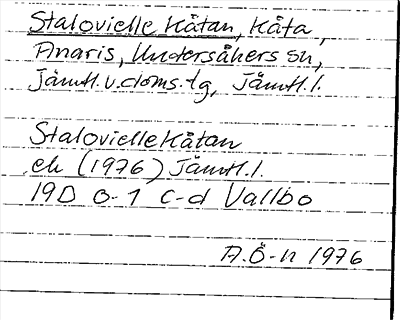 Stalovielle Kåtan, Kåta,
Anaris, Undersåkers sn,
Jämtl.v.doms.tg, Jämtl.l.
Stalovielle Kåtan
ek (1976) Jämtl.l.
19D 0-1 c-d Vallbo
A.Ö-n 1976